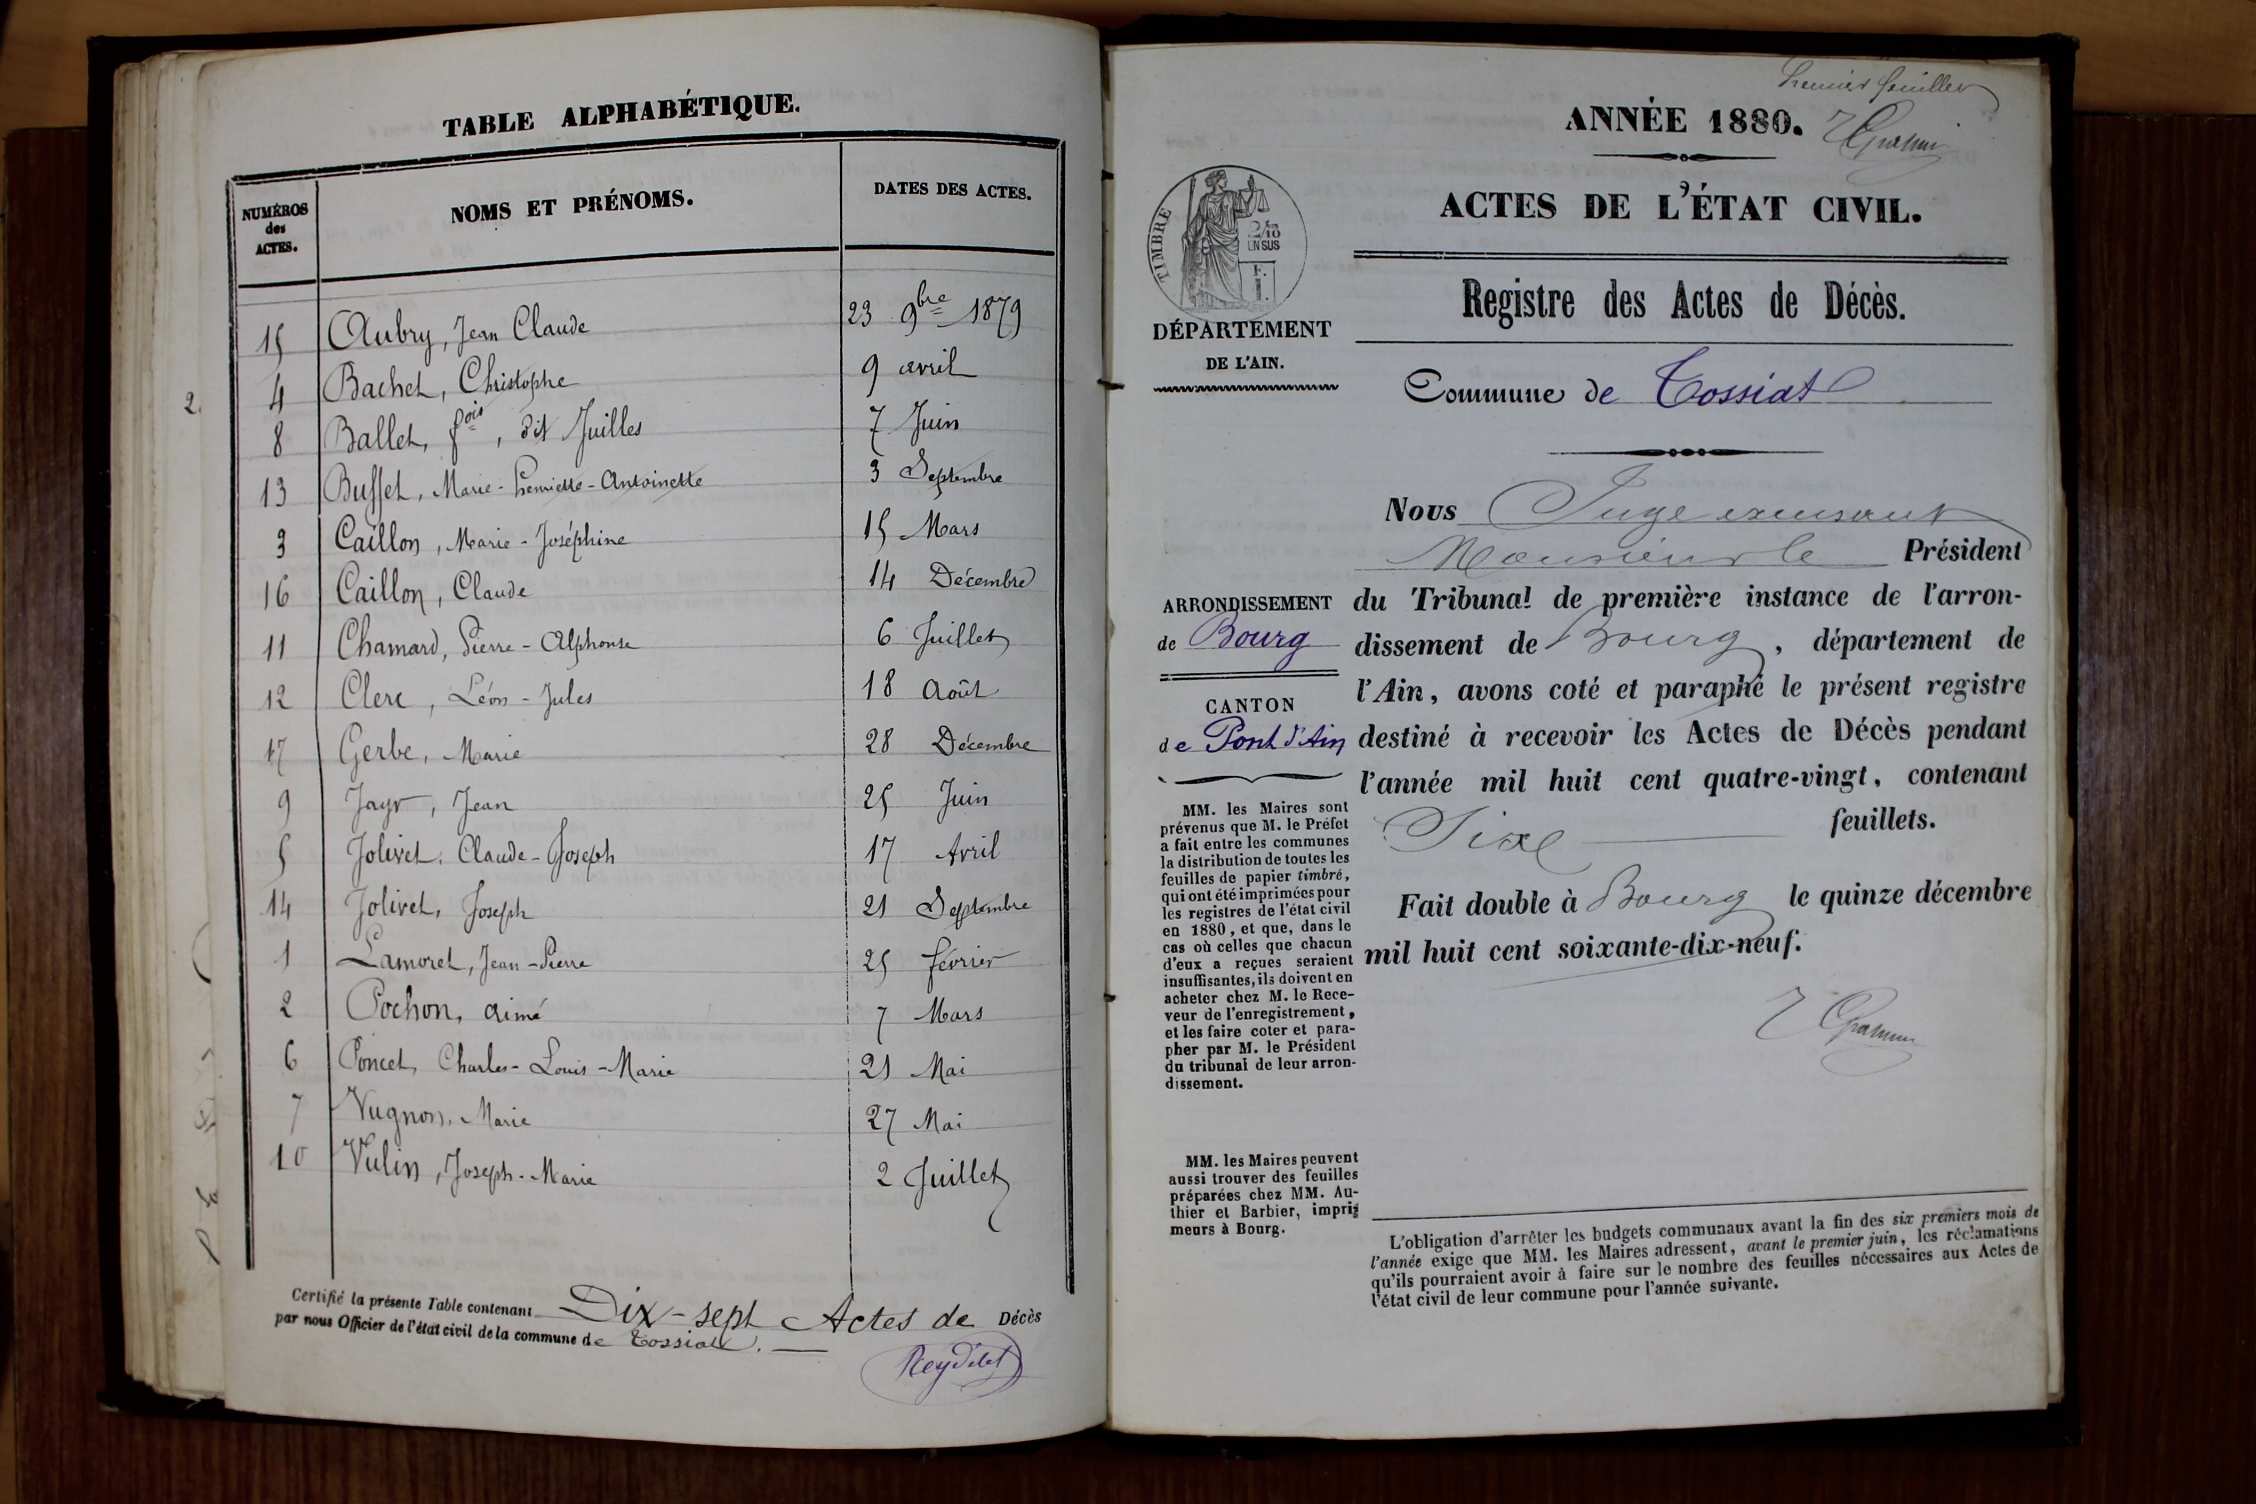 TABLE ALPHABÉTIQUE.
NUMÉROS des ACTES. NOMS ET PRÉNOMS. DATES DES ACTES.
15 Aubry, Jean Claude 23 9bre 1879
4 Bachet, Christophe 9 avril
2.
8 Ballet, fois, dit Juilles 7 Juin
13 Buffet, Marie-henriette-Antoinette 3 Septembre
3 Caillon, Marie-Joséphine 15 Mars
16 Caillon, Claude 14 Décembre
11 Chamard, Pierre-Alphonse 6 Juillet
12 Clerc, Léon-Jules 18 Août
17 Gerbe, Marie 28 Décembre
9 Jayr, Jean 25 Juin
5 Jolivet, Claude-Joseph 17 Avril
14 Jolivet, Joseph 21 Septembre
1 Lamoret, Jean-Pierre 25 février
2 Pochon, aimé 7 Mars
6 Poncet, Charles-Louis-Marie 21 Mai
7 Vugnon, Marie 27 Mai
10 Vulin, Joseph-Marie 2 Juillet
Certifié la présente Table contenant Dix-sept Actes de Décès
par nous Officier de l'état civil de la commune de Tossiat.
Reydelet
Premier feuillet
ANNÉE 1880.
ACTES DE L'ÉTAT CIVIL.
TIMBRE
2/10
EN SUS
F.
1.
Registre des Actes de Décès.
DÉPARTEMENT
DE L'AIN.
Commune de Tossiat
Nous Juge excusant
Monsieur le Président
du Tribunal de première instance de l'arron-
dissement de Bourg, département de
l'Ain, avons coté et paraphé le présent registre
destiné à recevoir les Actes de Décès pendant
l'année mil huit cent quatre-vingt, contenant
Six feuillets.
Fait double à Bourg le quinze décembre
mil huit cent soixante-dix-neuf.
ARRONDISSEMENT
de Bourg
CANTON
de Pont d'Ain
MM. les Maires sont
prévenus que M. le Préfet
a fait entre les communes
la distribution de toutes les
feuilles de papier timbré,
qui ont été imprimées pour
les registres de l'état civil
en 1880, et que, dans le
cas où celles que chacun
d'eux a reçues seraient
insuffisantes, ils doivent en
acheter chez M. le Rece-
veur de l'enregistrement,
et les faire coter et para-
pher par M. le Président
du tribunal de leur arron-
dissement.
MM. les Maires peuvent
aussi trouver des feuilles
préparées chez MM. Au-
thier et Barbier, impri-
meurs à Bourg.
L'obligation d'arrêter les budgets communaux avant la fin des six premiers mois de
l'année exige que MM. les Maires adressent, avant le premier juin, les réclamations
qu'ils pourraient avoir à faire sur le nombre des feuilles nécessaires aux Actes de
l'état civil de leur commune pour l'année suivante.